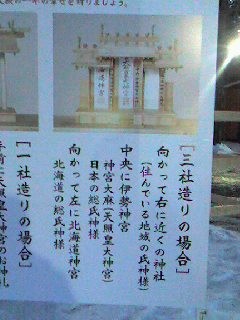 年の幸せを祈りましょう。
[三社造りの場合]
向かって右に近くの神社
(住んでいる地域の氏神様)
中央に伊勢神宮
神宮大麻(天照皇大神宮)
日本の総氏神様
向かって左に北海道神宮
北海道の総氏神様
[一社造りの場合]
天照皇大神宮のお神札